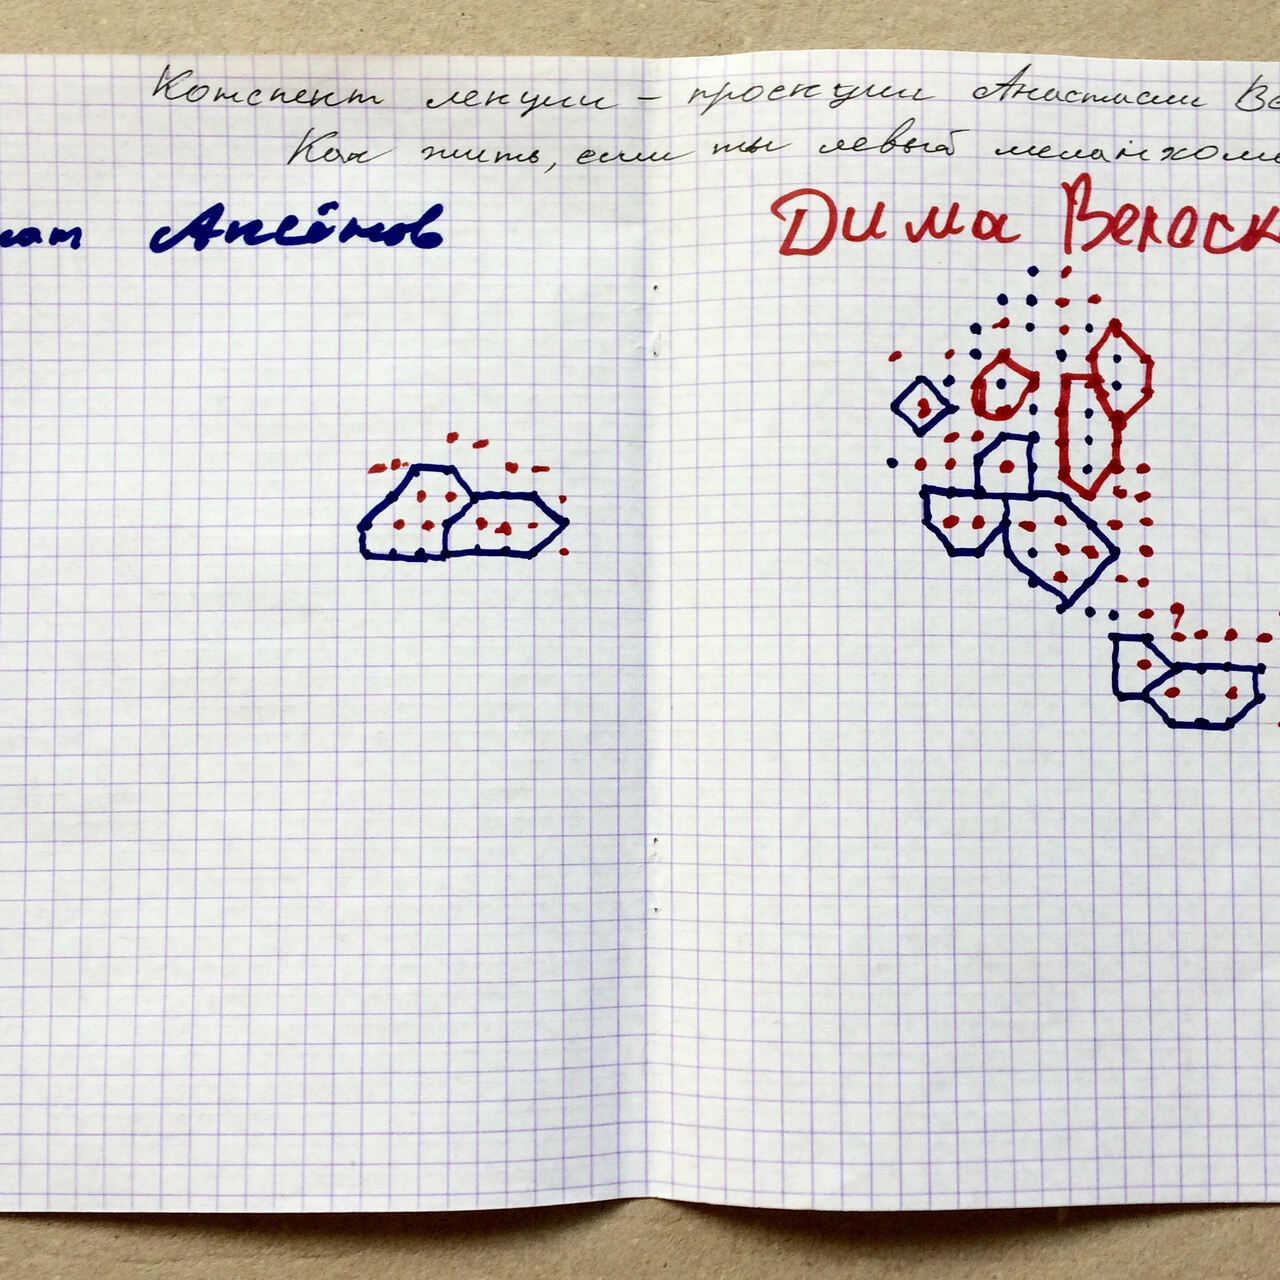 Конспект лекции - проекции Анастасии Ве
Как жить, если ты левый меланхоли
Аксёнов
Дима Веласк